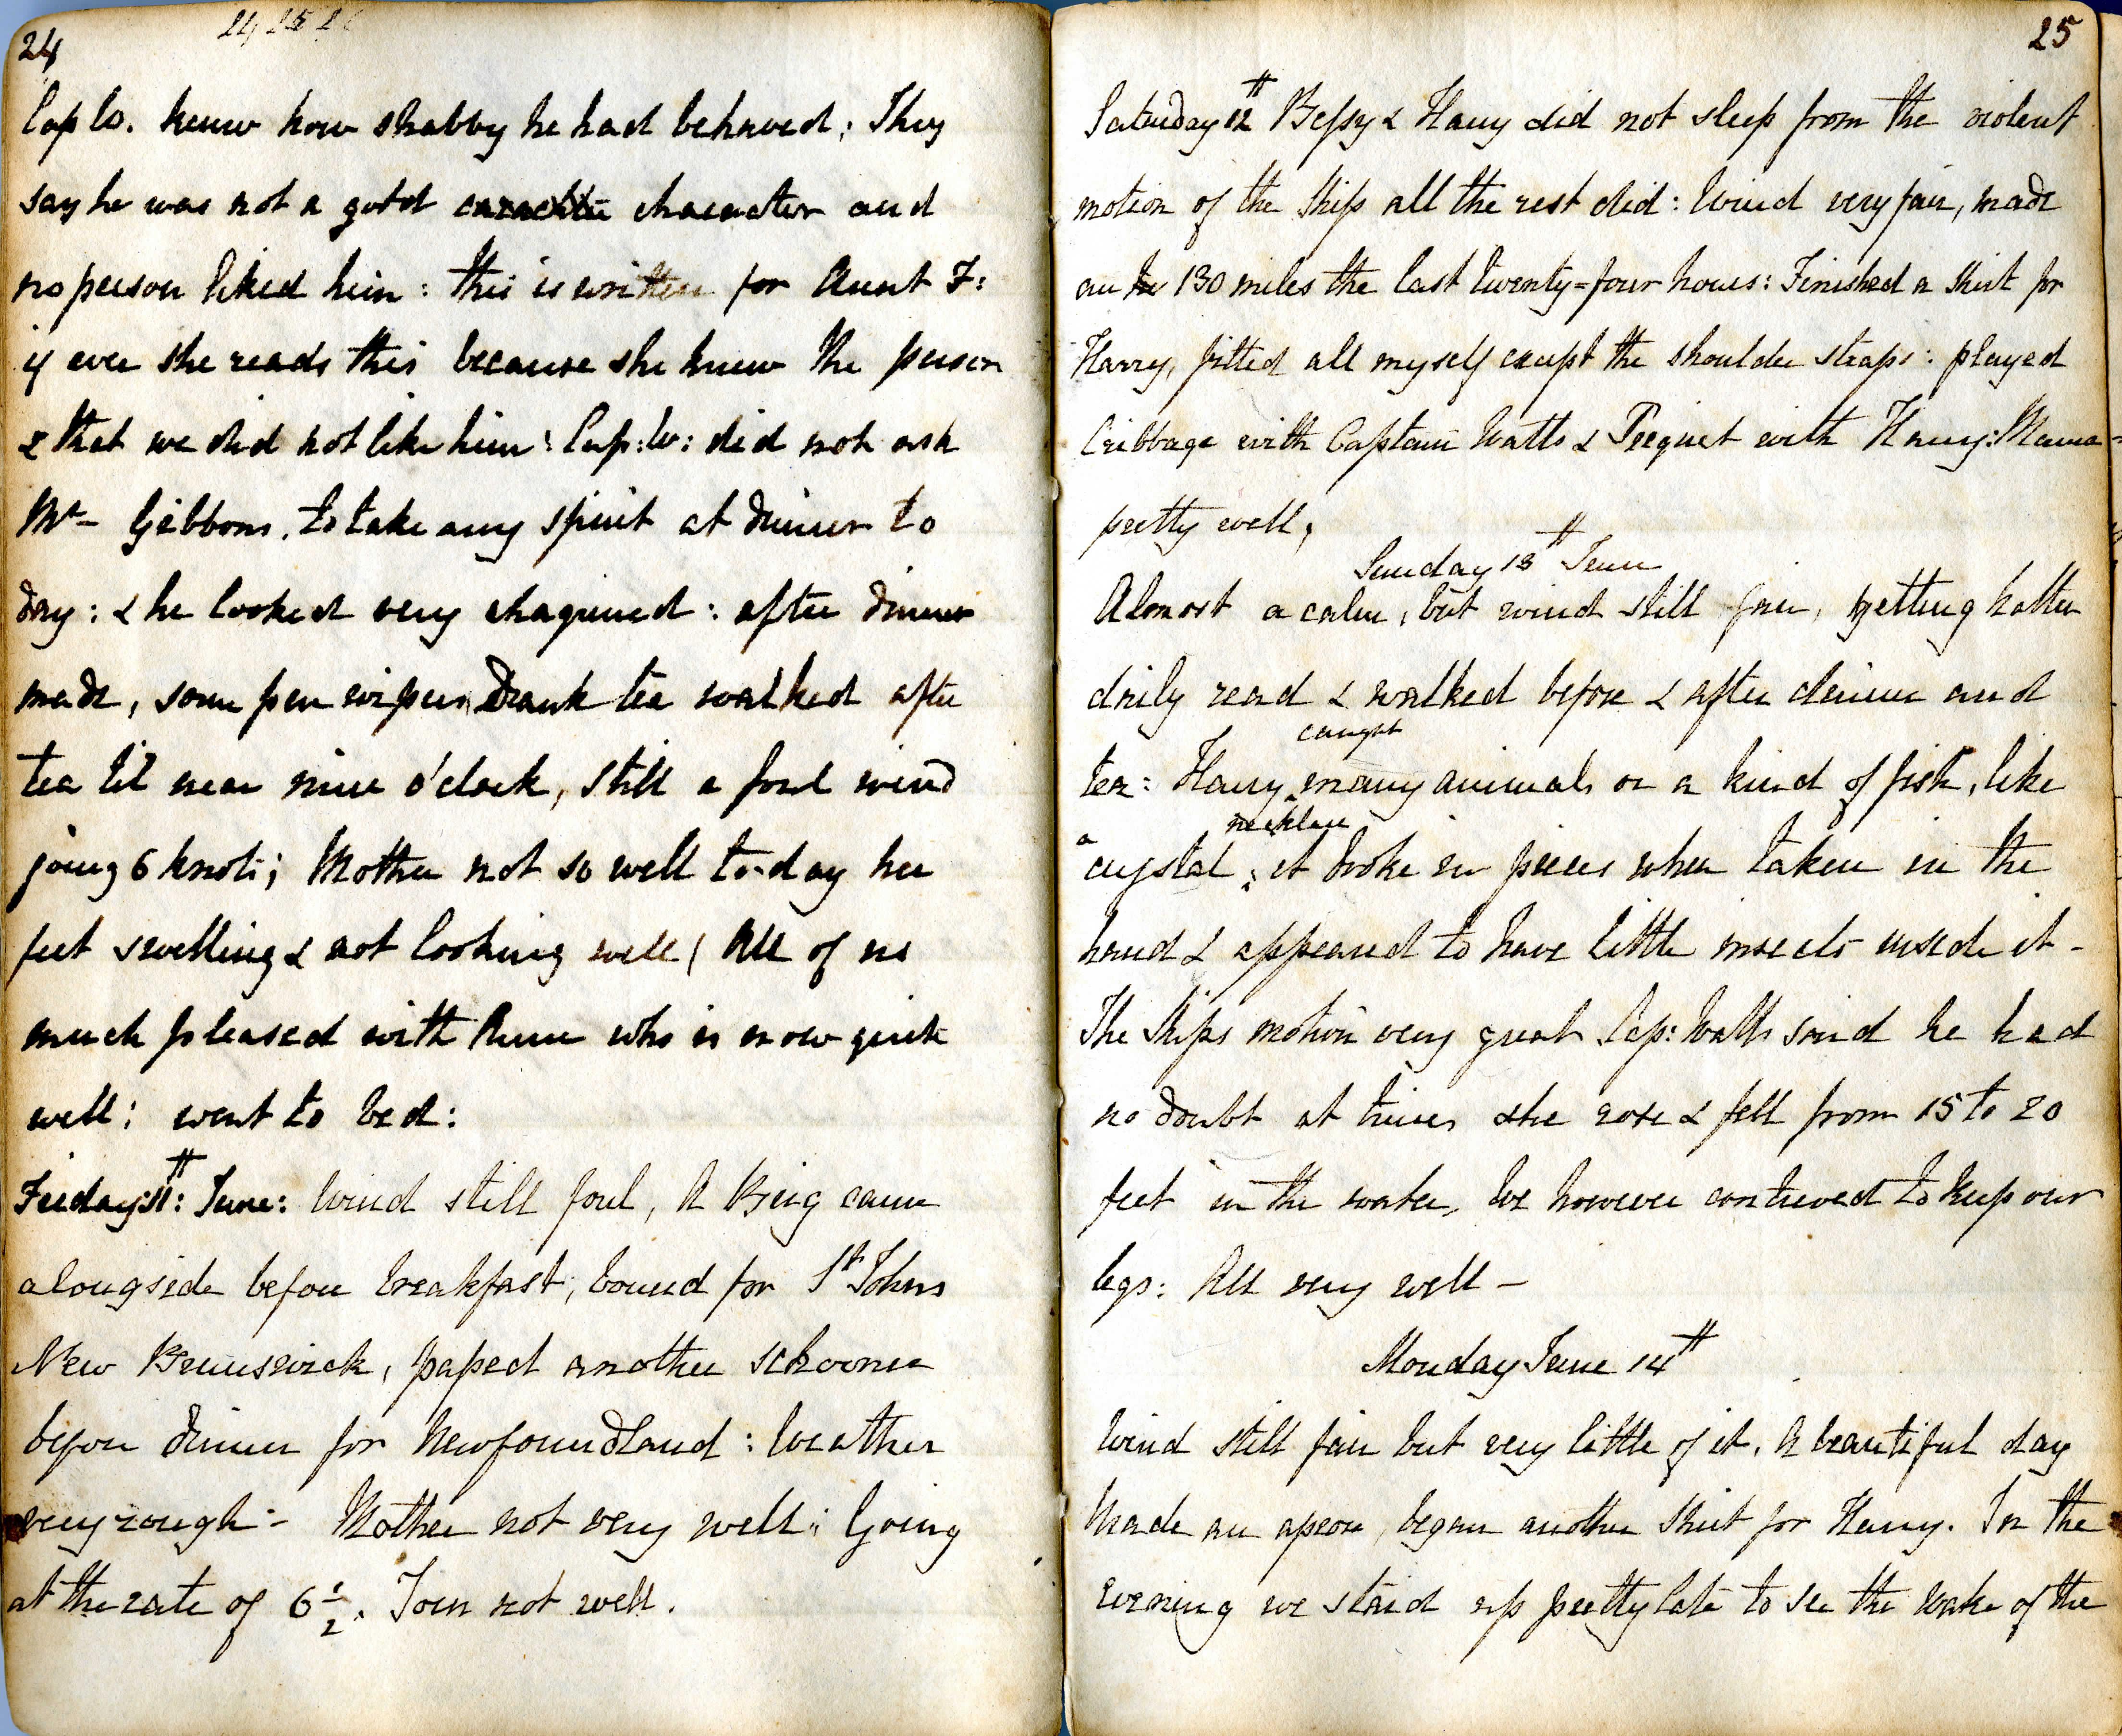 24
24 25 2
Cap W. knew how shabby he had behaved; They
say he was not a good charactor and
no person liked him: this is written for Aunt F:
if ever she reads this because she knew the person
& that we did not like him: Cap: W: did not ask
Mr- Gibbons. to take any spirit at dinner to
day: & he looked very chagrined: after dinner
made, some pen wipers, Drank tea walked after
tea til near nine o'clock, still a foul wind
going 6 knots; Mother not so well to-day her
feet swelling & not looking well ( All of us
much pleased with Anne who is now quite
well; went to bed:
Friday 11th: June: Wind still foul, A Brig came
alongside before breakfast, bound for St Johns
New Brunswick, passed another schooner
before dinner for Newfoundland: Weather
very rough:- Mother not very well; Going
at the rate of 6 1/2. Tom not well.
25
Saturday 12th Bessy & Harry did not sleep from the violent
motion of the Ship all the rest did: Wind very fair, made
130 miles the last twenty=four hours: Finished a Shirt for
Harry, fitted all myself except the shoulder straps: played
Cribbage with Captain Watts & Picquet with Harry: Mama=
pretty well,
Sunday 13th June
Almost a calm, but wind still fair, getting hotter
daily read & walked before & after dinner and
tea: Harry caught many animals or a kind of fish, like
a crystal necklace; it broke in pieces when taken in the
hand & appeared to have little insects inside it -
The Ships motion very great Cap: Watts said he had
no doubt at times she rose & fell from 15 to 20
feet in the water, We however contrived to keep our
legs: All very well -
Monday June 14th
Wind still fair but very little of it. A beautiful day
Made an apron, began another Shirt for Harry. In the
evening we staid up pretty late to see the wake of the